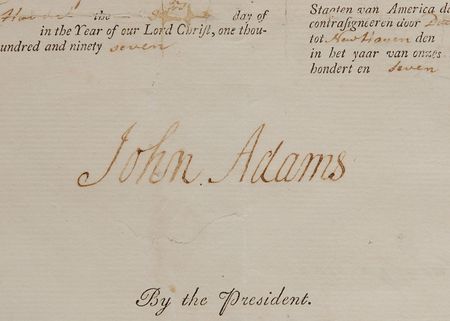 the day of
in the Year of our Lord Christ, one thou-
undred and ninety seven
Staaten van America de
contrasigneeren door
tot New Haven den
in het yaar van onzes
hondert en seven
John Adams
By the President.